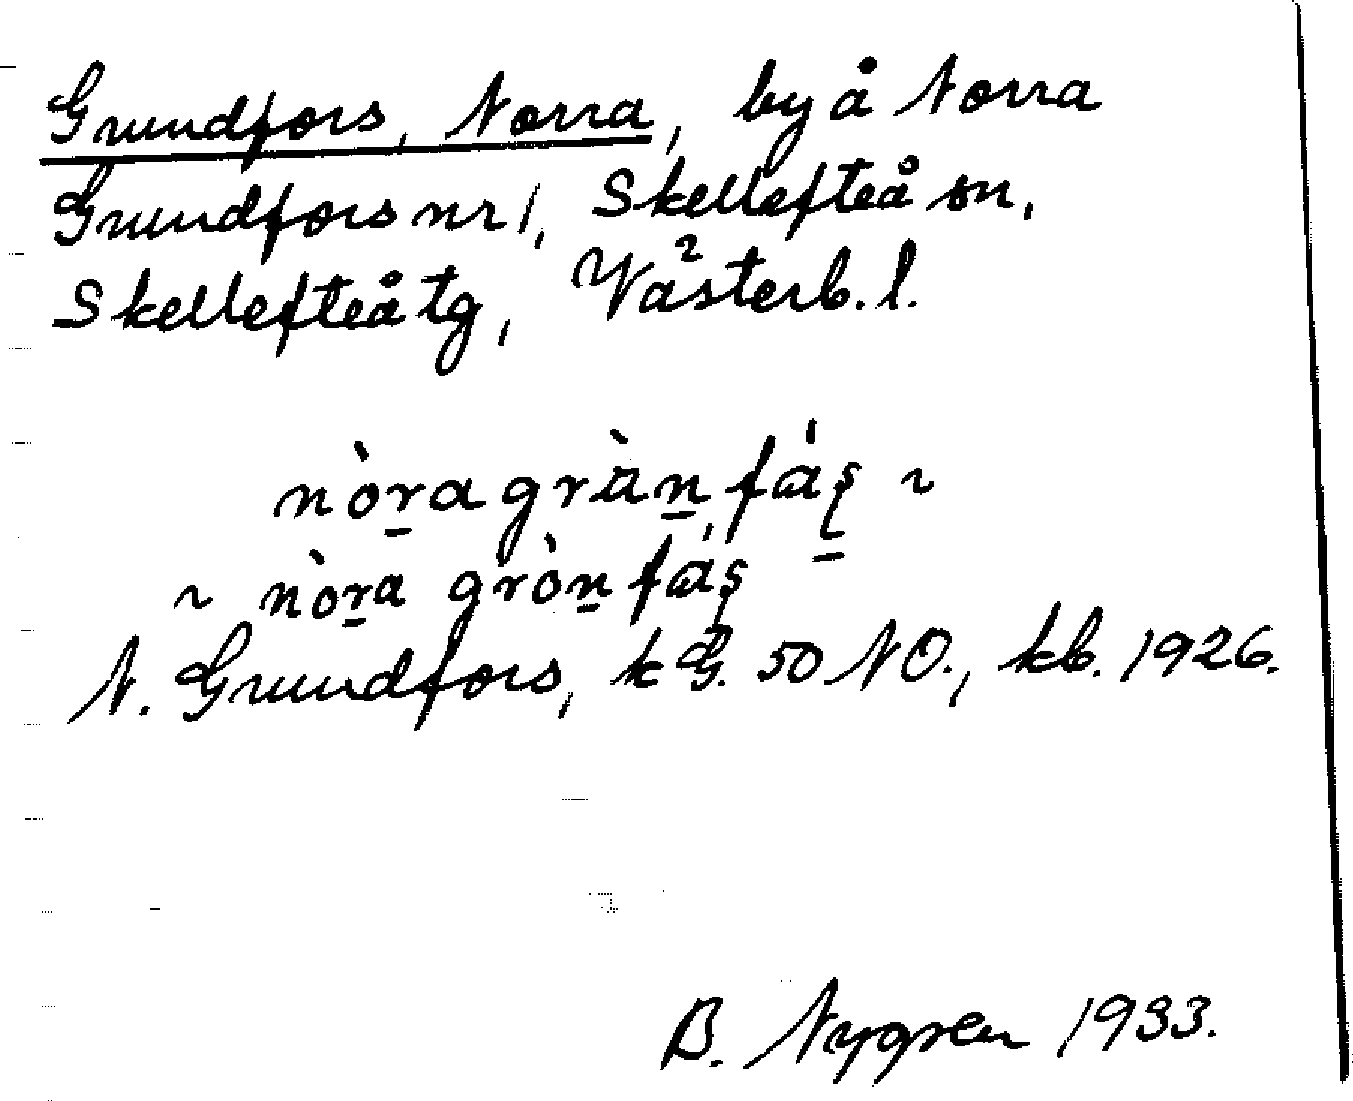 Grundfors, Norra, by å Norra
Grundfors nr 1, Skellefteå sn,
Skellefteå tg, Västerb. l.
nòr̲a gràn̲fáş̲ ~
~ nòr̲a gròn̲fáş
N. Grundfors, k G. 50 NO., kb. 1926.
B. Nygren 1933.